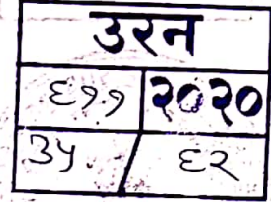 उरन
६११ २०२०
३५ / ६२